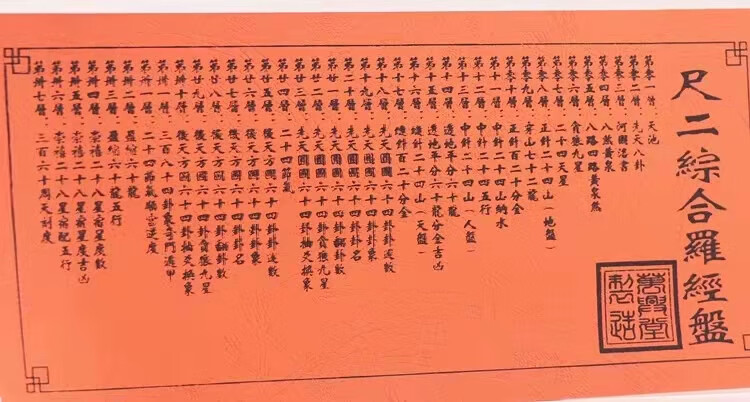 尺二綜合羅經盤
第零一層：天池
第零二層：先天八卦
第零三層：河圖洛書
第零四層：八煞黃泉
第零五層：八路四路黃泉煞
第零六層：貪狼九星
第零七層：二十四天星
第零八層：正針二十四山(地盤)
第零九層：穿山七十二龍
第零十層：正針百二十分金
第十一層：中針二十四山納水
第十二層：中針二十四五行
第十三層：中針二十四山(人盤)
第十四層：透地平分六十龍
第十五層：透地平分六十龍分金吉凶
第十六層：縫針二十四山(天盤)
第十七層：縫針百二十分金
第十八層：先天圓圖六十四卦卦運數
第十九層：先天圓圖六十四卦卦象
第二十層：先天圓圖六十四卦卦名
第廿一層：先天圓圖六十四卦翻卦數
第廿二層：先天圓圖六十四卦貪狼九星
第廿三層：先天圓圖六十四卦抽爻換象
第廿四層：二十四節氣
第廿五層：後天方圖六十四卦卦運數
第廿六層：後天方圖六十四卦卦象
第廿七層：後天方圖六十四卦卦名
第廿八層：後天方圖六十四卦翻卦數
第廿九層：後天方圖六十四卦貪狼九星
第卅十層：後天方圖六十四卦抽爻換象
第卅一層：三百八十四卦象奇門遁甲
第卅二層：二十四節氣逆度
第卅三層：盈縮六十龍
第卅四層：盈縮六十龍五行
第卅五層：崇禧二十八星宿星度數
第卅六層：崇禧二十八星宿星度吉凶
第卅七層：崇禧二十八星宿配五行
三百六十周天刻度
萬興堂
製造